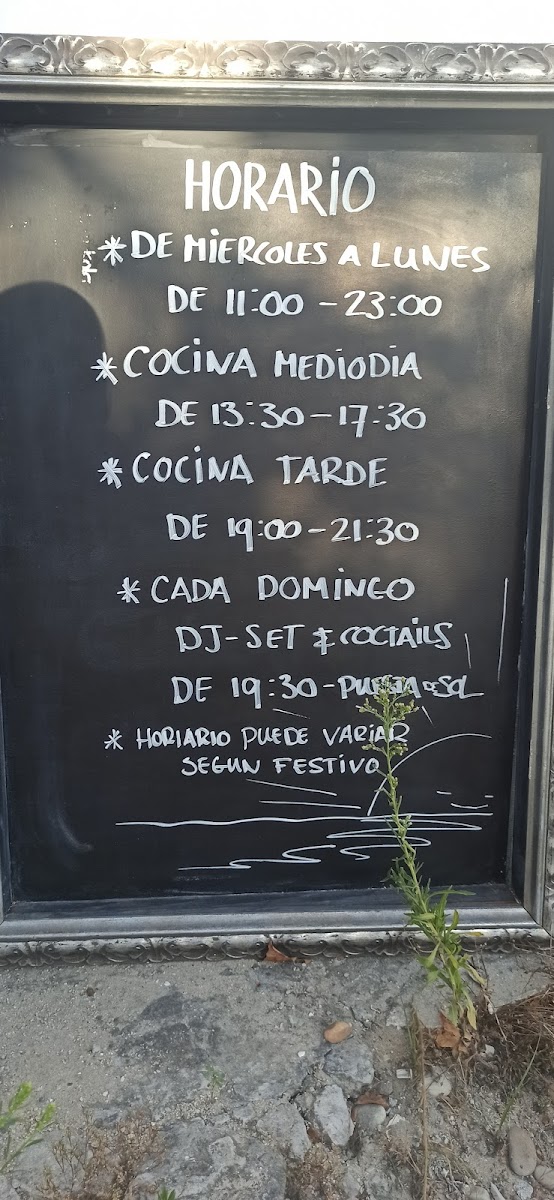 HORARIO
* DE MIERCOLES A LUNES
DE 11:00 - 23:00
* COCINA MEDIODIA
DE 13:30 - 17:30
* COCINA TARDE
DE 19:00 - 21:30
* CADA DOMINGO
DJ-SET & COCTAILS
DE 19:30 - PUESTA DE SOL
* HORIARIO PUEDE VARIAR
SEGUN FESTIVO